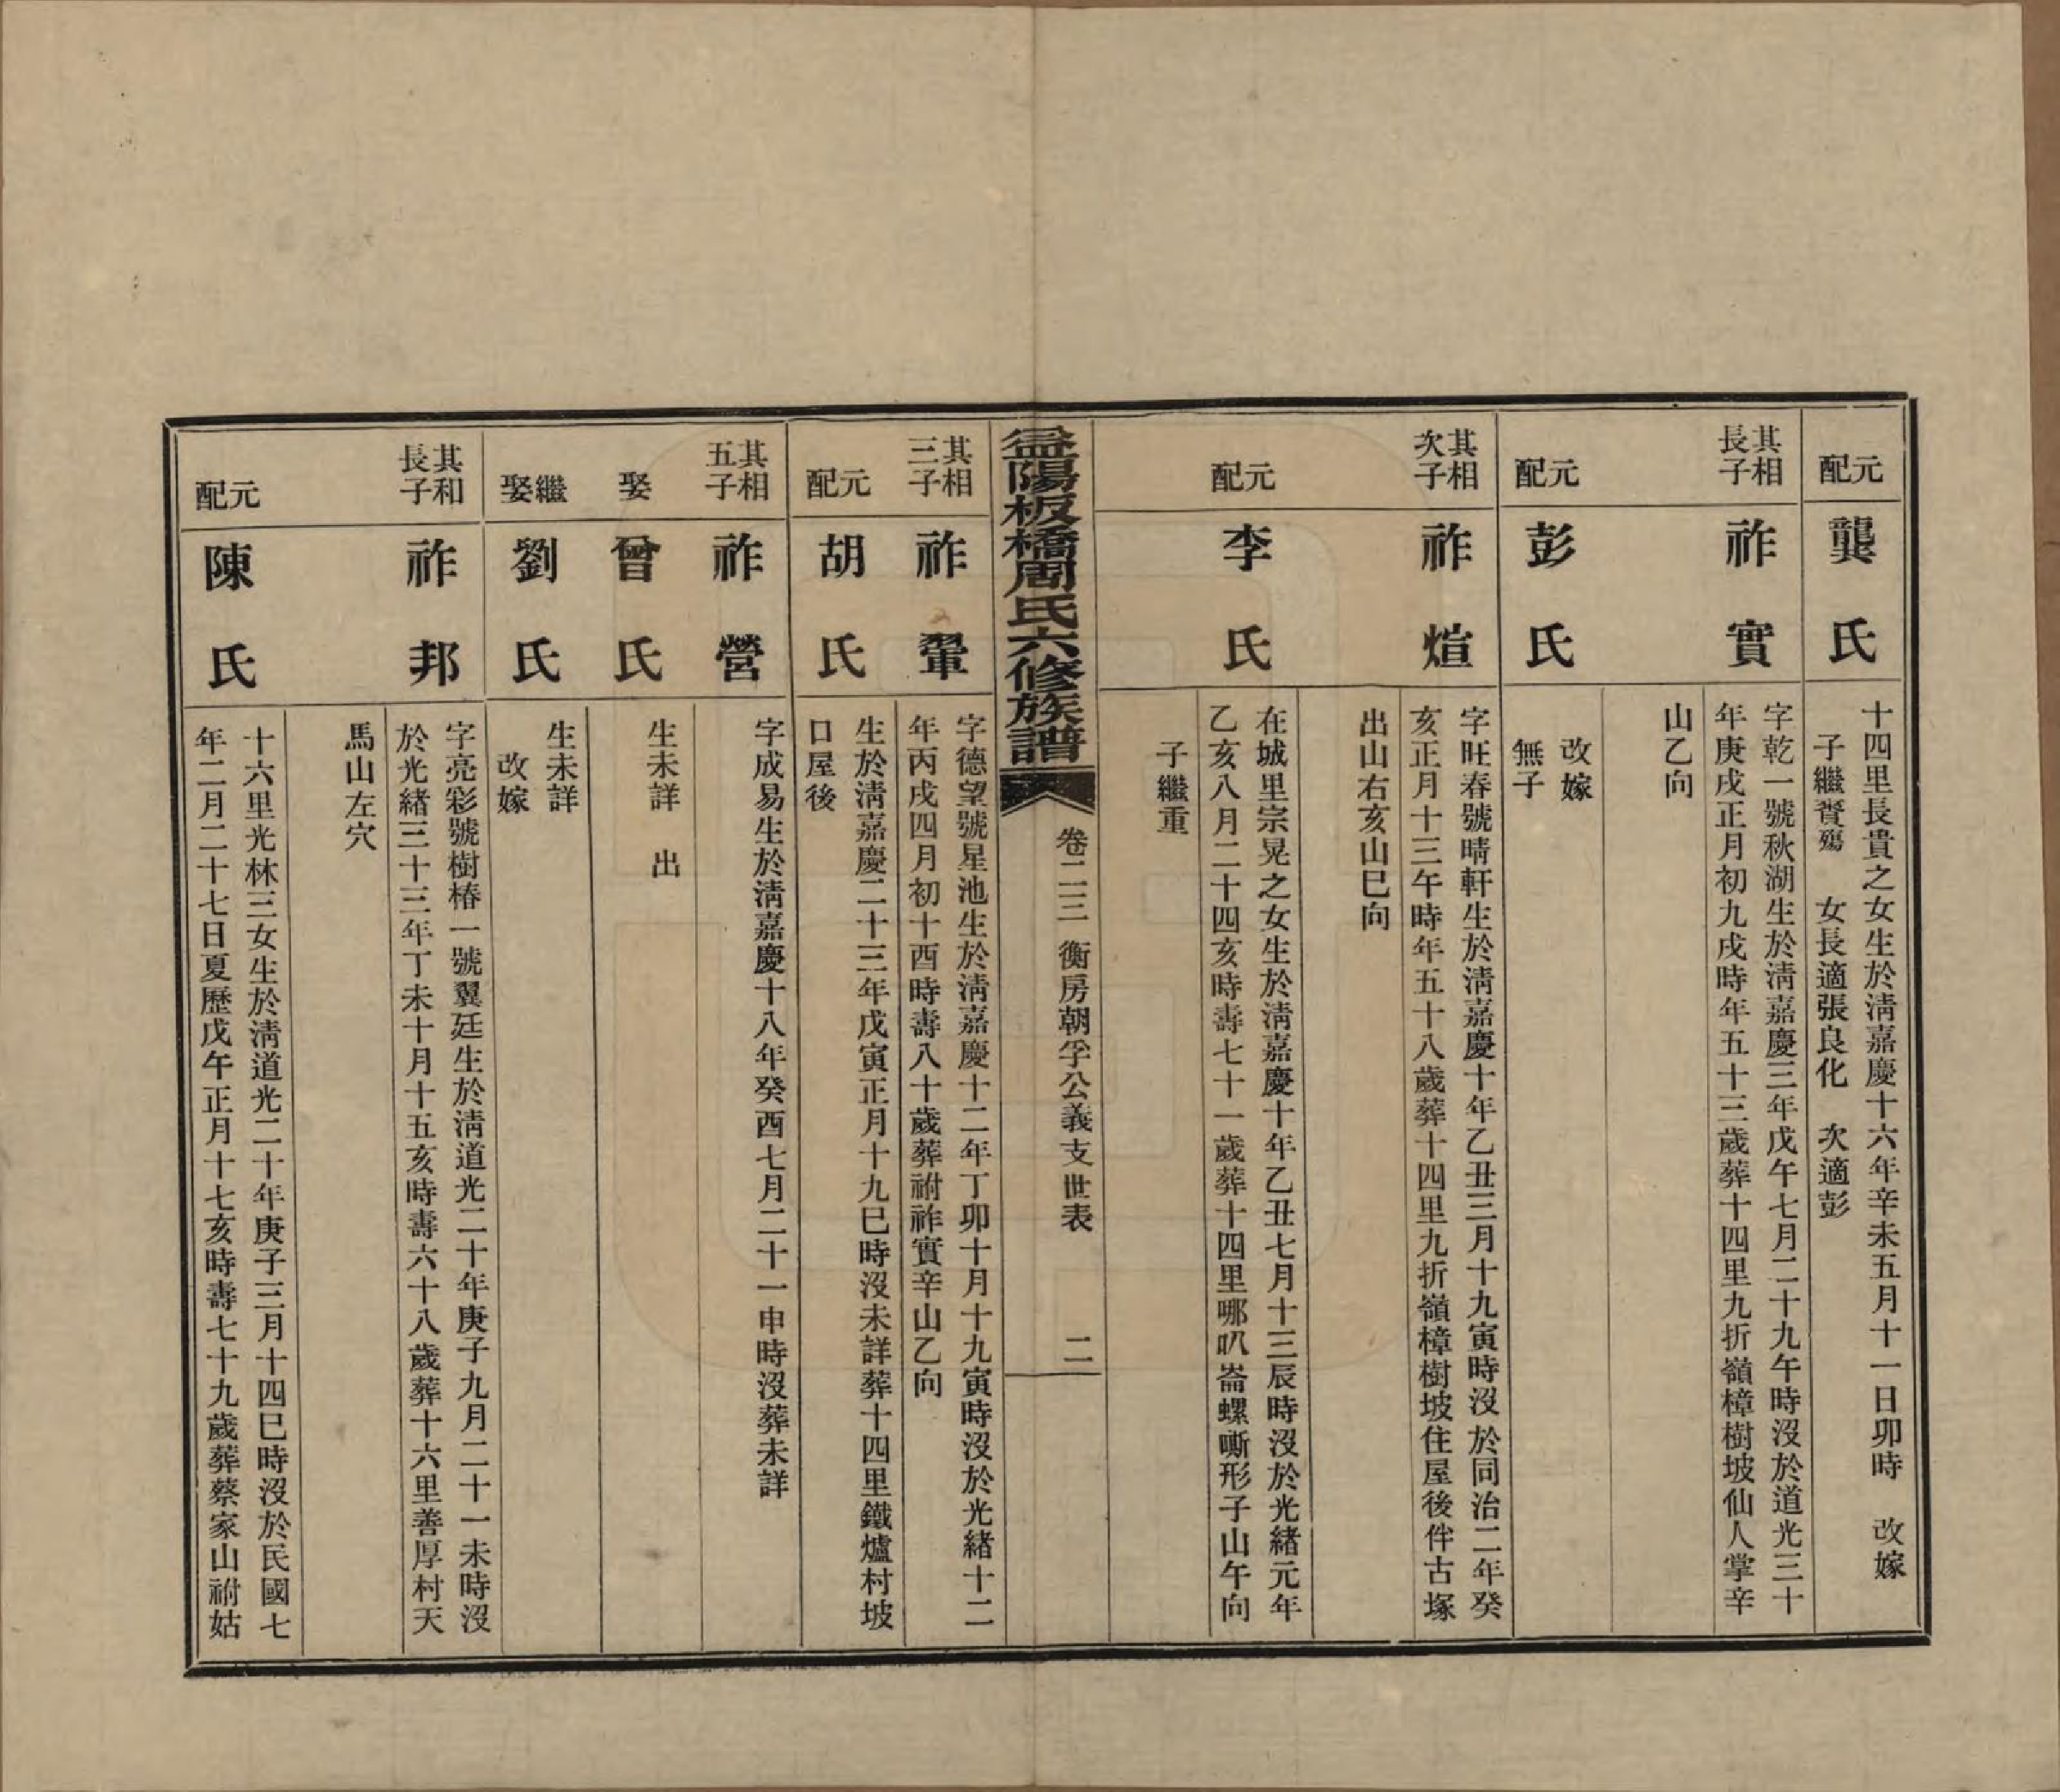 元配
龔氏
十四里長貴之女生於淸嘉慶十六年辛未五月十一日卯時　改嫁
子繼賫殤　女長適張良化　次適彭
其相長子
祚實
字乾一號秋湖生於淸嘉慶三年戊午七月二十九午時沒於道光三十
年庚戌正月初九戌時年五十三歲葬十四里九折嶺樟樹坡仙人掌辛
山乙向
元配
彭氏
改嫁
無子
其相次子
祚煊
字旺春號晴軒生於淸嘉慶十年乙丑三月十九寅時沒於同治二年癸
亥正月十三午時年五十八歲葬十四里九折嶺樟樹坡住屋後伴古塚
出山右亥山巳向
元配
李氏
在城里宗晃之女生於淸嘉慶十年乙丑七月十三辰時沒於光緒元年
乙亥八月二十四亥時壽七十一歲葬十四里哪叭崙螺嘶形子山午向
子繼重
益陽板橋周氏六修族譜
卷二三　衡房朝孚公義支世表
二
其相三子
祚翬
字德望號星池生於淸嘉慶十二年丁卯十月十九寅時沒於光緒十二
年丙戌四月初十酉時壽八十歲葬祔祚實辛山乙向
元配
胡氏
生於淸嘉慶二十三年戊寅正月十九巳時沒未詳葬十四里鐵爐村坡
口屋後
其相五子
祚營
字成易生於淸嘉慶十八年癸酉七月二十一申時沒葬未詳
娶
曾氏
生未詳　出
繼娶
劉氏
生未詳
改嫁
其和長子
祚邦
字亮彩號樹椿一號翼廷生於淸道光二十年庚子九月二十一未時沒
於光緒三十三年丁未十月十五亥時壽六十八歲葬十六里善厚村天
馬山左穴
元配
陳氏
十六里光林三女生於淸道光二十年庚子三月十四巳時沒於民國七
年二月二十七日夏歷戊午正月十七亥時壽七十九歲葬蔡家山祔姑